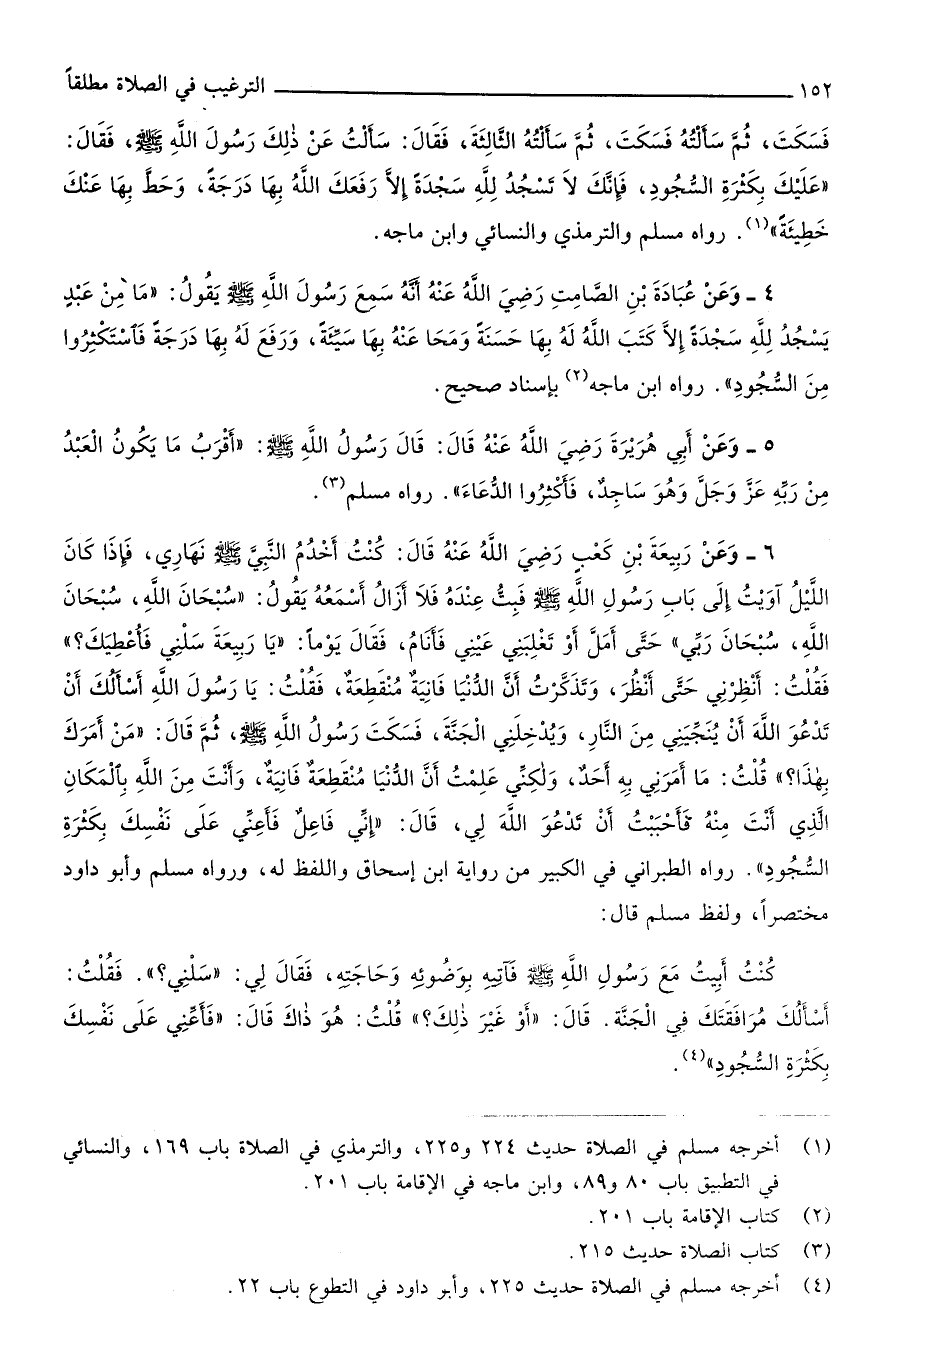 ١٥٢ ـــــــ الترغيب في الصلاة مطلقاً
فَسَكَتَ، ثُمَّ سَأَلْتُهُ فَسَكَتَ، ثُمَّ سَأَلْتُهُ الثَّالِثَةَ، فَقَالَ: سَأَلْتُ عَنْ ذٰلِكَ رَسُولَ اللَّهِ ﷺ، فَقَالَ:
«عَلَيْكَ بِكَثْرَةِ السُّجُودِ، فَإِنَّكَ لَا تَسْجُدُ لِلَّهِ سَجْدَةً إِلاَّ رَفَعَكَ اللَّهُ بِهَا دَرَجَةً، وَحَطَّ بِهَا عَنْكَ
خَطِيئَةً»(١). رواه مسلم والترمذي والنسائي وابن ماجه.
٤ ـ وَعَنْ عُبَادَةَ بْنِ الصَّامِتِ رَضِيَ اللَّهُ عَنْهُ أَنَّهُ سَمِعَ رَسُولَ اللَّهِ ﷺ يَقُولُ: «مَا مِنْ عَبْدٍ
يَسْجُدُ لِلَّهِ سَجْدَةً إِلاَّ كَتَبَ اللَّهُ لَهُ بِهَا حَسَنَةً وَمَحَا عَنْهُ بِهَا سَيِّئَةً، وَرَفَعَ لَهُ بِهَا دَرَجَةً فَٱسْتَكْثِرُوا
مِنَ السُّجُودِ». رواه ابن ماجه(٢) بإسناد صحيح.
٥ ـ وَعَنْ أَبِي هُرَيْرَةَ رَضِيَ اللَّهُ عَنْهُ قَالَ: قَالَ رَسُولُ اللَّهِ ﷺ: «أَقْرَبُ مَا يَكُونُ الْعَبْدُ
مِنْ رَبِّهِ عَزَّ وَجَلَّ وَهُوَ سَاجِدٌ، فَأَكْثِرُوا الدُّعَاءَ». رواه مسلم(٣).
٦ ـ وَعَنْ رَبِيعَةَ بْنِ كَعْبٍ رَضِيَ اللَّهُ عَنْهُ قَالَ: كُنْتُ أَخْدُمُ النَّبِيَّ ﷺ نَهَارِي، فَإِذَا كَانَ
اللَّيْلُ آوَيْتُ إِلَى بَابِ رَسُولِ اللَّهِ ﷺ فَبِتُّ عِنْدَهُ فَلَا أَزَالُ أَسْمَعُهُ يَقُولُ: «سُبْحَانَ اللَّهِ، سُبْحَانَ
اللَّهِ، سُبْحَانَ رَبِّي» حَتَّى أَمَلَّ أَوْ تَغْلِبَنِي عَيْنِي فَأَنَامُ، فَقَالَ يَوْماً: «يَا رَبِيعَةَ سَلْنِي فَأُعْطِيَكَ؟»
فَقُلْتُ: أَنْظِرْنِي حَتَّى أَنْظُرَ، وَتَذَكَّرْتُ أَنَّ الدُّنْيَا فَانِيَةٌ مُنْقَطِعَةٌ، فَقُلْتُ: يَا رَسُولَ اللَّهِ أَسْأَلُكَ أَنْ
تَدْعُوَ اللَّهَ أَنْ يُنَجِّيَنِي مِنَ النَّارِ، وَيُدْخِلَنِي الْجَنَّةَ، فَسَكَتَ رَسُولُ اللَّهِ ﷺ، ثُمَّ قَالَ: «مَنْ أَمَرَكَ
بِهٰذَا؟» قُلْتُ: مَا أَمَرَنِي بِهِ أَحَدٌ، وَلٰكِنِّي عَلِمْتُ أَنَّ الدُّنْيَا مُنْقَطِعَةٌ فَانِيَةٌ، وَأَنْتَ مِنَ اللَّهِ بِٱلْمَكَانِ
الَّذِي أَنْتَ مِنْهُ فَأَحْبَبْتُ أَنْ تَدْعُوَ اللَّهَ لِي، قَالَ: «إِنِّي فَاعِلٌ فَأَعِنِّي عَلَى نَفْسِكَ بِكَثْرَةِ
السُّجُودِ». رواه الطبراني في الكبير من رواية ابن إسحاق واللفظ له، ورواه مسلم وأبو داود
مختصراً، ولفظ مسلم قال:
كُنْتُ أَبِيتُ مَعَ رَسُولِ اللَّهِ ﷺ فَآتِيهِ بِوَضُوئِهِ وَحَاجَتِهِ، فَقَالَ لِي: «سَلْنِي؟». فَقُلْتُ:
أَسْأَلُكَ مُرَافَقَتَكَ فِي الْجَنَّة. قَالَ: «أَوْ غَيْرَ ذٰلِكَ؟» قُلْتُ: هُوَ ذَاكَ قَالَ: «فَأَعِّنِي عَلَى نَفْسِكَ
بِكَثْرَةِ السُّجُودِ»(٤).
(١) أخرجه مسلم في الصلاة حديث ٢٢٤ و٢٢٥، والترمذي في الصلاة باب ١٦٩، والنسائي
في التطبيق باب ٨٠ و٨٩، وابن ماجه في الإقامة باب ٢٠١.
(٢) كتاب الإقامة باب ٢٠١.
(٣) كتاب الصلاة حديث ٢١٥.
(٤) أخرجه مسلم في الصلاة حديث ٢٢٥، وأبو داود في التطوع باب ٢٢.